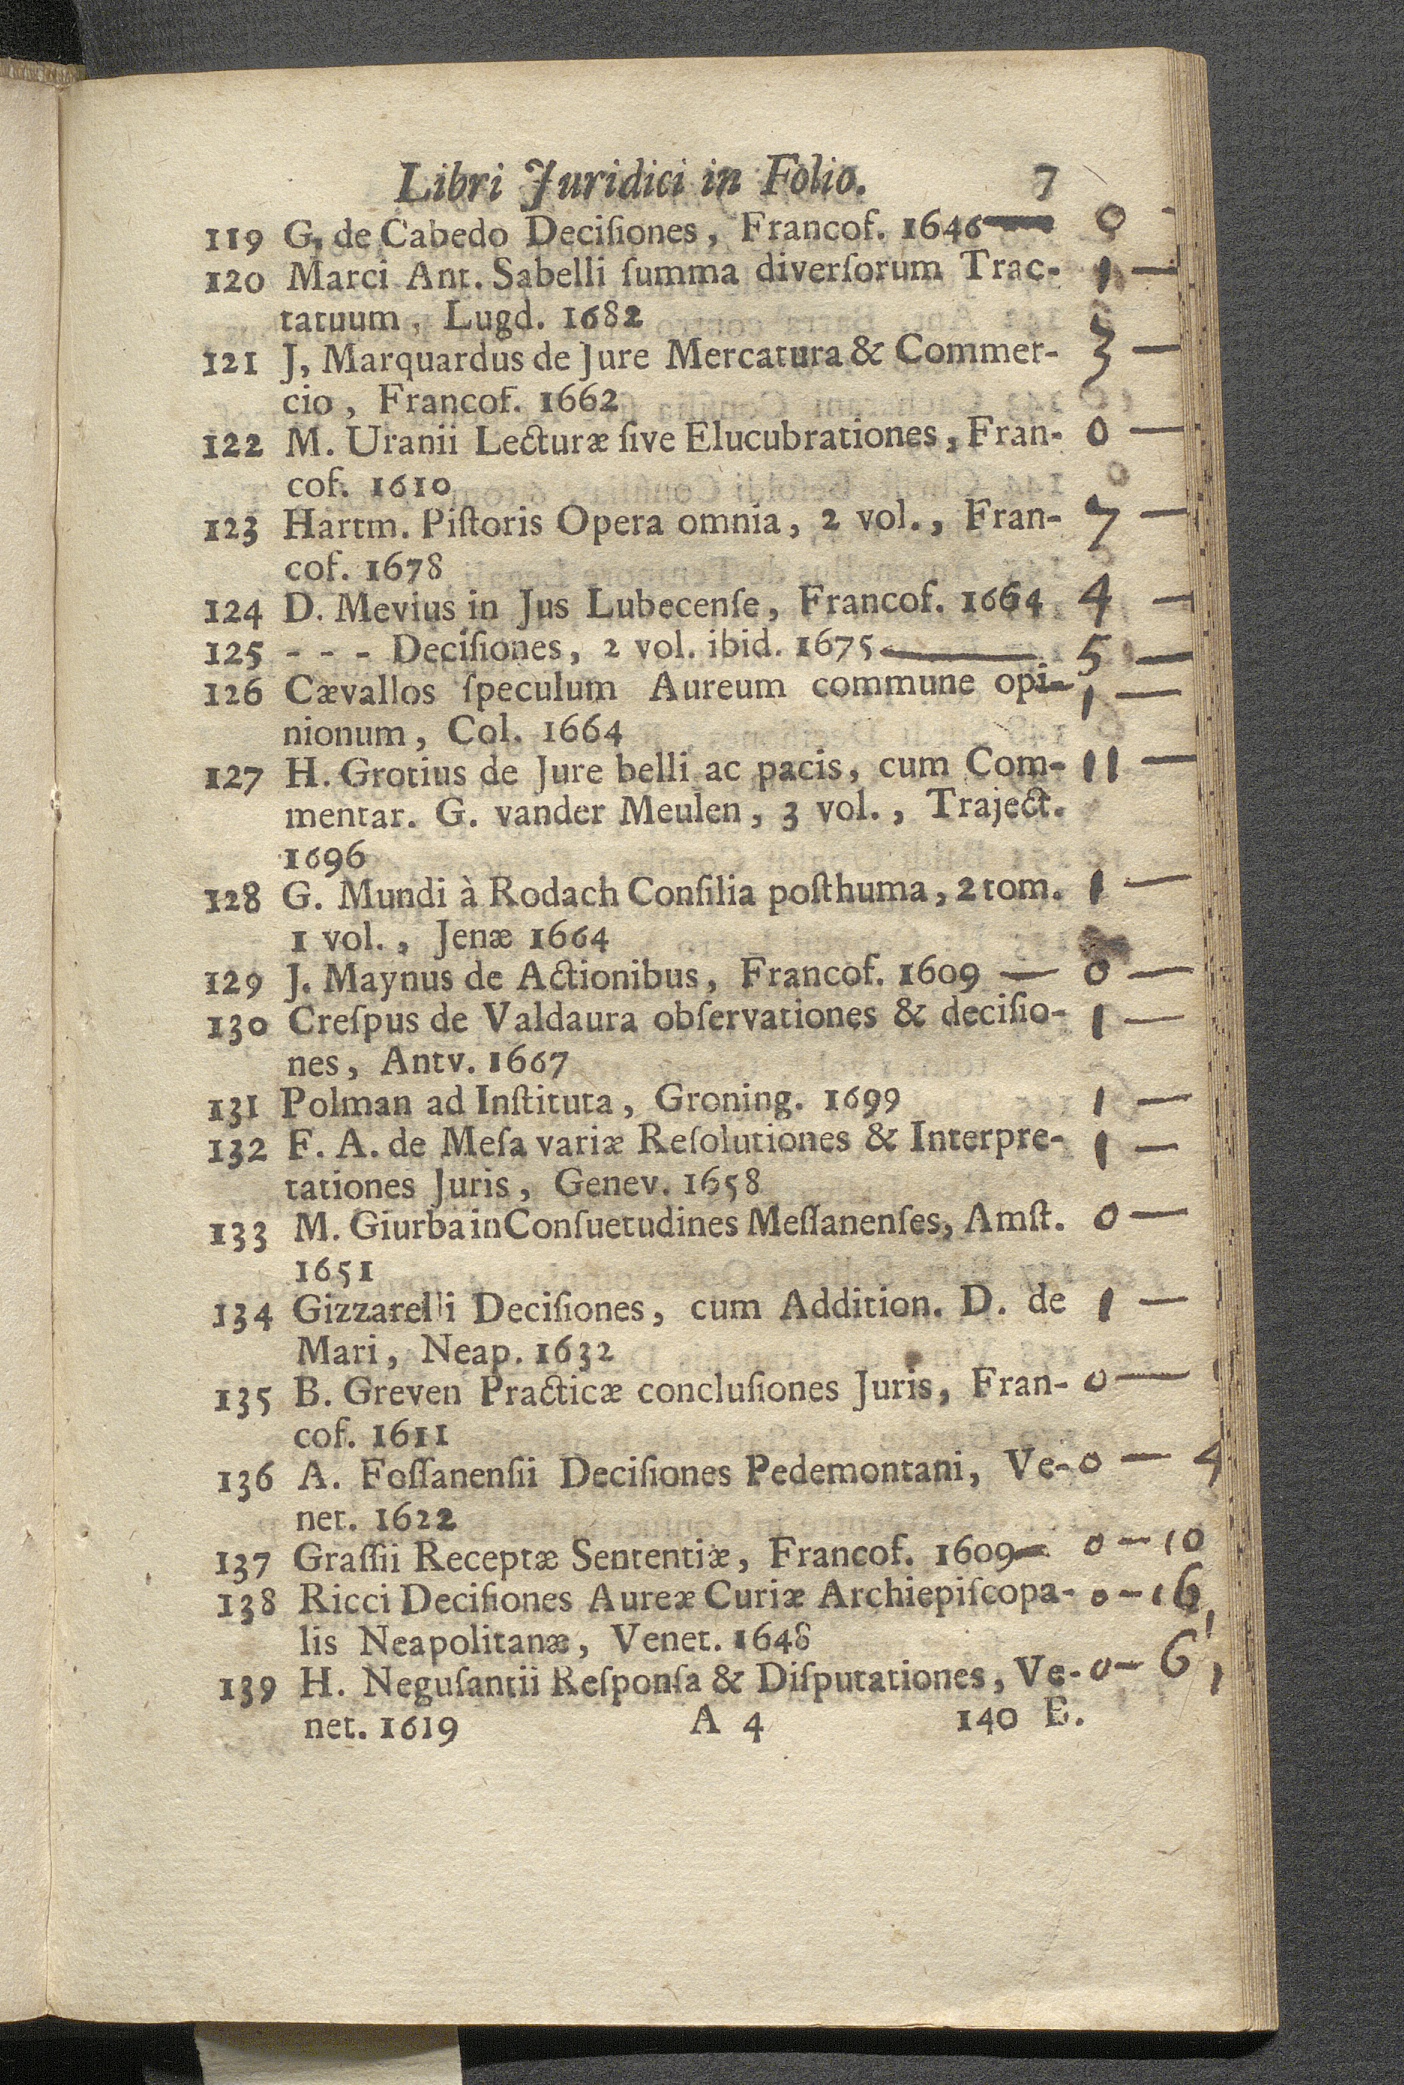 Libri Juridici in Folio. 7
119 G, de Cabedo Deciſiones, Francof. 1646 — 0 -
120 Marci Ant. Sabelli ſumma diverſorum Trac- 1 —
tatuum, Lugd. 1682
121 J, Marquardus de Jure Mercatura & Commer- 3 —
cio, Francof. 1662
122 M. Uranii Lecturæ ſive Elucubrationes, Fran- 0 —
cof. 1610
123 Hartm. Piſtoris Opera omnia, 2 vol., Fran- 7 —
cof. 1678
124 D. Mevius in Jus Lubecenſe, Francof. 1664 4 —
125 - - - Deciſiones, 2 vol. ibid. 1675 — 5 —
126 Cævallos ſpeculum Aureum commune opi- 1 —
nionum, Col. 1664
127 H. Grotius de Jure belli ac pacis, cum Com- 11 —
mentar. G. vander Meulen, 3 vol., Traject.
1696
128 G. Mundi à Rodach Conſilia poſthuma, 2 tom. 1 —
1 vol., Jenæ 1664
129 J. Maynus de Actionibus, Francof. 1609 — 0 —
130 Creſpus de Valdaura obſervationes & deciſio- 1 —
nes, Antv. 1667
131 Polman ad Inſtituta, Groning. 1699 1 —
132 F. A. de Meſa variæ Reſolutiones & Interpre- 1 —
tationes Juris, Genev. 1658
133 M. Giurba in Conſuetudines Meſſanenſes, Amſt. 0 —
1651
134 Gizzarelli Deciſiones, cum Addition. D. de 1 —
Mari, Neap. 1632
135 B. Greven Practicæ concluſiones Juris, Fran- 0 —
cof. 1611
136 A. Foſſanenſii Deciſiones Pedemontani, Ve- 0 — 4
net. 1622
137 Graſſii Receptæ Sententiæ, Francof. 1609 — 0 — 10
138 Ricci Deciſiones Aureæ Curiæ Archiepiſcopa- 0 — 16
lis Neapolitanæ, Venet. 1648
139 H. Neguſantii Reſponſa & Diſputationes, Ve- 0 — 6
net. 1619 A 4 140 B.